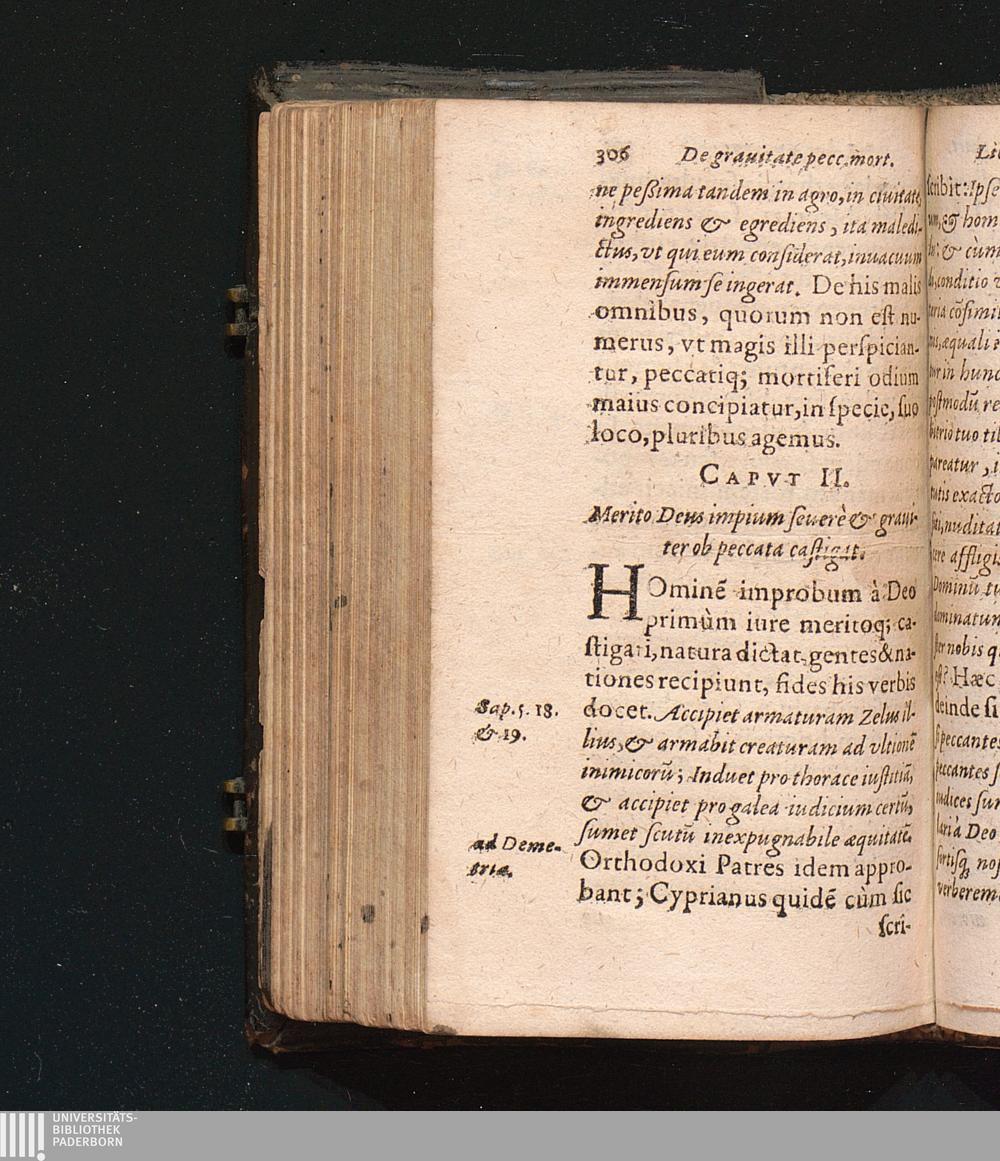 306 De grauitate pecc. mort.
ne peſsima tandem in agro, in ciuitate,
ingrediens & egrediens, ita maledi-
ctus, vt qui eum conſiderat, inuacuum
immenſum ſe ingerat. De his malis
omnibus, quorum non eſt nu-
merus, vt magis illi perſpician-
tur, peccatiq; mortiferi odium
maius concipiatur, in ſpecie, ſuo
loco, pluribus agemus.
CAPVT II.
Merito Deus impium ſeuerè & graui-
ter ob peccata caſtigat.
HOminē improbum à Deo
primùm iure meritoq; ca-
ſtigari, natura dictat, gentes & na-
tiones recipiunt, fides his verbis
docet. Accipiet armaturam Zelus il-
lius, & armabit creaturam ad vltionē
inimicorū; Induet pro thorace iuſtitiā,
& accipiet pro galea iudicium certū,
ſumet ſcutū inexpugnabile æquitatē.
Orthodoxi Patres idem appro-
bant; Cyprianus quidē cùm ſic
ſcri-
Sap. 5. 18.
& 19.
ad Deme-
triæ.
ſcribit: Ipſe
& hom
& cùm
conditio
cōſimil
æquali
in hunc
poſtmodū re
tuo til
pareatur,
exacto
nuditat
affligis
Dominū tu
nobis q
Hæc
deinde ſi
peccantes
peccantes
à Deo
noſ
verberem
UNIVERSITÄTS-
BIBLIOTHEK
PADERBORN